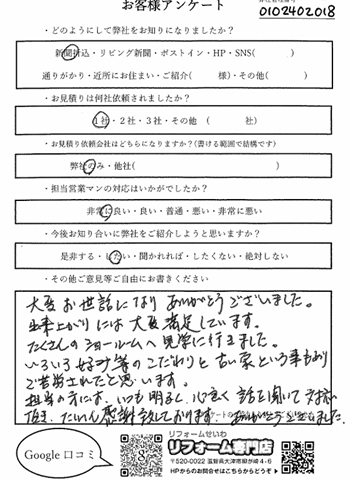 お客様アンケート
0102402018
・どのようにして弊社をお知りになりましたか？
新聞折込・リビング新聞・ポストイン・HP・SNS(　　　)
通りがかり・近所にお住まい・ご紹介(　　　様)・その他(　　　)
・お見積りは何社依頼されましたか？
1社・2社・3社・その他　(　　　社)
・お見積り依頼会社はどちらになりますか？(書ける範囲で結構です)
弊社のみ・他社(　　　)
・担当営業マンの対応はいかがでしたか？
非常に良い・良い・普通・悪い・非常に悪い
・今後お知り合いに弊社をご紹介しようと思いますか？
是非する・したい・聞かれれば・したくない・絶対しない
・その他ご意見等ご自由にお書きください
大変お世話になり ありがとうございました。
出来上がりには大変満足しています。
たくさんのショールームへ見学に行きました。
いろいろ好み等のこだわりと古い家という事もあり
ご苦労されたと思います。
担当の方には、いつも明るく 心良く 話を聞いて対応
頂き、たいへん感謝致しております。ありがとうございました。
Google 口コミ
リフォームせいわ
リフォーム専門店
〒520-0022 滋賀県大津市柳が崎4-6
HPからのお問合せはこちらからどうぞ